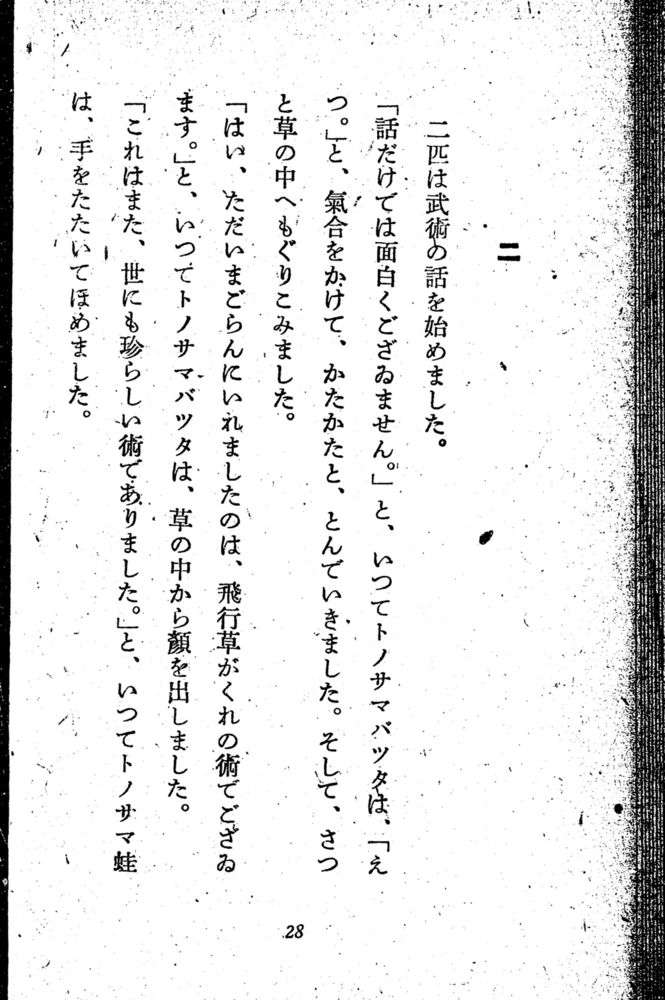 二
二匹は武術の話を始めました。
「話だけでは面白くござゐません。」と、いつてトノサマバツタは、「え
つ。」と、氣合をかけて、かたかたと、とんでいきました。そして、さつ
と草の中へもぐりこみました。
「はい、ただいまごらんにいれましたのは、飛行草がくれの術でござゐ
ます。」と、いつてトノサマバツタは、草の中から顏を出しました。
「これはまた、世にも珍らしい術でありました。」と、いつてトノサマ蛙
は、手をたたいてほめました。
28